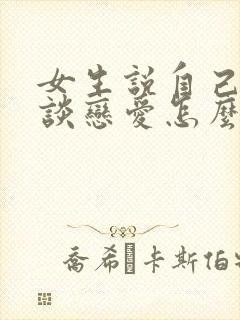 女生説自己
談戀愛怎麼
喬希·卡斯伯